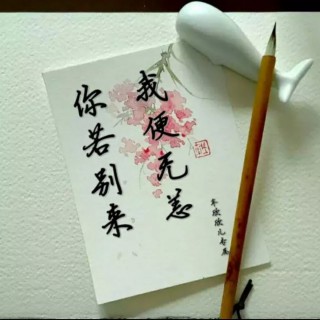 你若别来
我便无恙